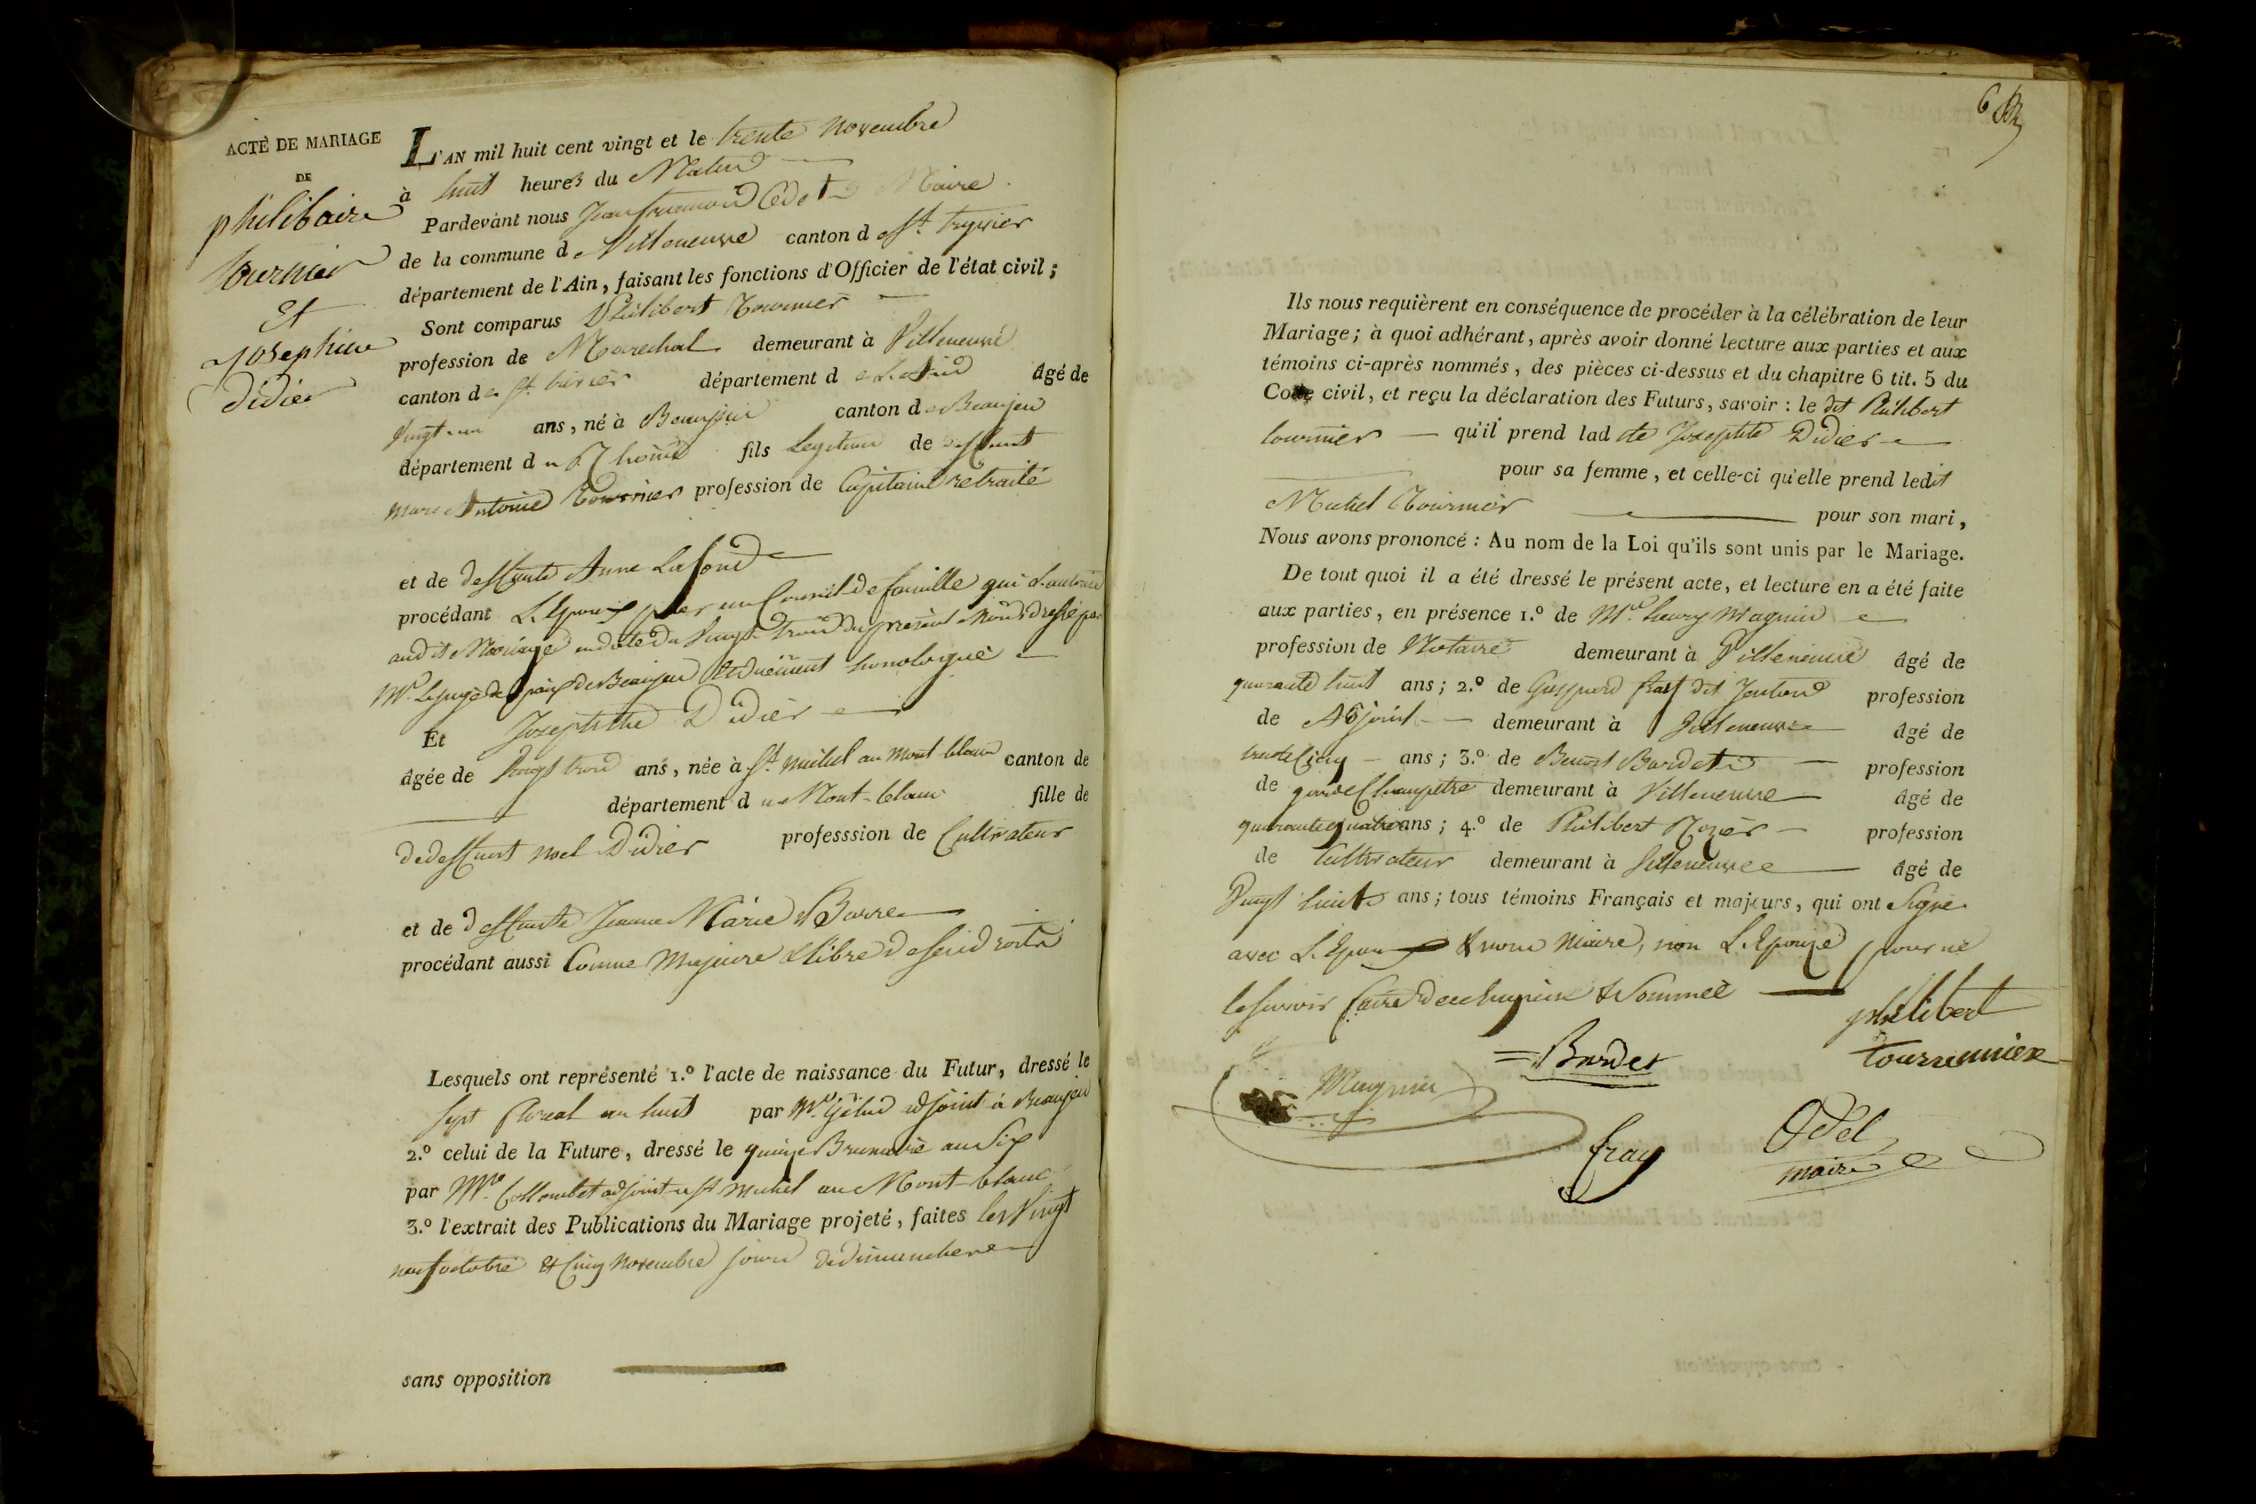 ACTE DE MARIAGE
DE
philibaire
tournier
Et
josephine
didier
L'AN mil huit cent vingt et le trente Novembre
à huit heures du Matin
Pardevant nous Jean Odet Maire
de la commune de Villeneuve canton de St. trivier
département de l'Ain, faisant les fonctions d'Officier de l'état civil;
Sont comparus Philibert Tournier
profession de Marechal demeurant à Villeneuve
canton de St. trivier département de Lain âgé de
Vingt un ans, né à Beaujeu canton de Beaujeu
département du Rhone fils legitime de deffunt
Marc Antoine Tournier profession de Capitaine retraité
et de deffunte Anne Lafond
procédant L'Epoux par un Conseil de famille qui L'autorise
audit Mariage en date du Vingt trois du present Mois dressé par
Mr. Le juge de paix de Beaujeu et duement homologué
Et Josephthe Didier
âgée de Vingt trois ans, née à St. Michel au Mont blanc canton de
département du Mont-blanc fille de
de deffunt Noel Didier professsion de Cultivateur
et de deffunte Jeanne Marie Barre
procédant aussi Comme Majeure & libre de ses droits
Lesquels ont représenté 1.º l'acte de naissance du Futur, dressé le
Sept floreal an huit par Mr. adjoint à Beaujeu
2.º celui de la Future, dressé le quinze Brumaire an Six
par Mr. Collombet adjoint a St Michel au Mont-blanc
3.º l'extrait des Publications du Mariage projeté, faites les Vingt
neuf octobre & Cinq Novembre jours de dimenche
sans opposition
6
Ils nous requièrent en conséquence de procéder à la célébration de leur
Mariage; à quoi adhérant, après avoir donné lecture aux parties et aux
témoins ci-après nommés, des pièces ci-dessus et du chapitre 6 tit. 5 du
Code civil, et reçu la déclaration des Futurs, savoir : le dit Philibert
tournier qu'il prend lad ite Josephte Didier
pour sa femme, et celle-ci qu'elle prend ledit
Michel Tournier pour son mari,
Nous avons prononcé : Au nom de la Loi qu'ils sont unis par le Mariage.
De tout quoi il a été dressé le présent acte, et lecture en a été faite
aux parties, en présence 1.º de Mre. henry Magnin
profession de Notaire demeurant à Villeneuve âgé de
quarante huit ans; 2.º de Gaspard fray dit Joubert profession
de Adjoint demeurant à Villeneuve âgé de
trente Cinq ans; 3.º de Benoit Bardet profession
de garde Champetre demeurant à Villeneuve âgé de
quarante quatre ans; 4.º de Philibert Rozier profession
de Cultivateur demeurant à Villeneuve âgé de
Vingt huit ans; tous témoins Français et majeurs, qui ont Signé
avec L'Epoux & nous Maire, non L'Epouze pour ne
le Savoir faire de ce enquise & Sommée
philibert
tourrennier
Bardet
Magnin
fray
Odet
maire